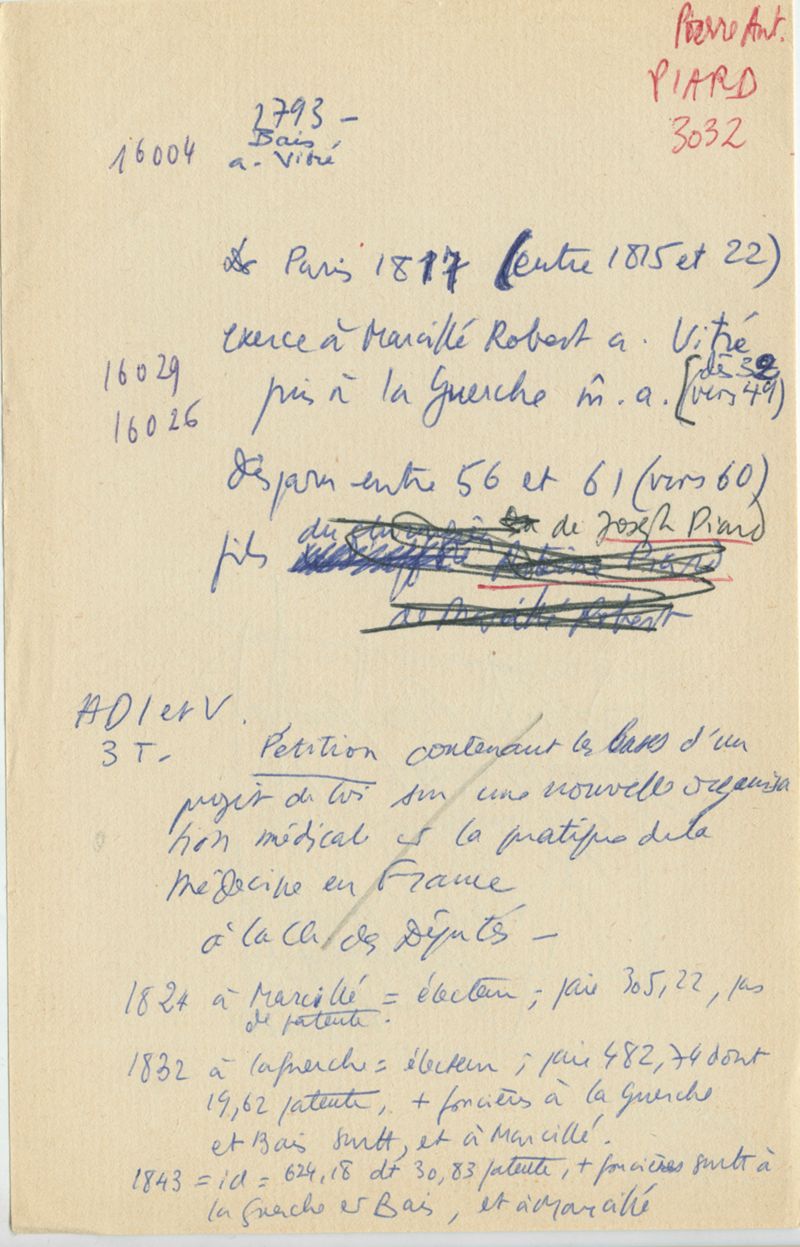 Pierre Ant.
PIARD
3032
1793 -
Bais
16004 a. Vitré
Dr Paris 1817 (entre 1815 et 22)
exerce à Marcillé Robert a. Vitré
16029 puis à la Guerche m. a. [dès 32
16026 (vers 49)
disparu entre 56 et 61 (vers 60)
fils de Joseph Piard
de Marcillé Robert
AD I et V.
3 T - Pétition contenant les bases d'un
projet de loi sur une nouvelle organisa
tion médicale et la pratique de la
Médecine en France
à la Ch des Députés -
1824 à Marcillé = électeur ; paie 305,22, pas
de patente.
1832 à la guerche = électeur ; paie 482,74 dont
19,62 patente, + foncières à la Guerche
et Bais surtt, et à Marcillé.
1843 = id = 624,18 dt 30,83 patente, + foncières surtt à
la Guerche et Bais, et à Marcillé